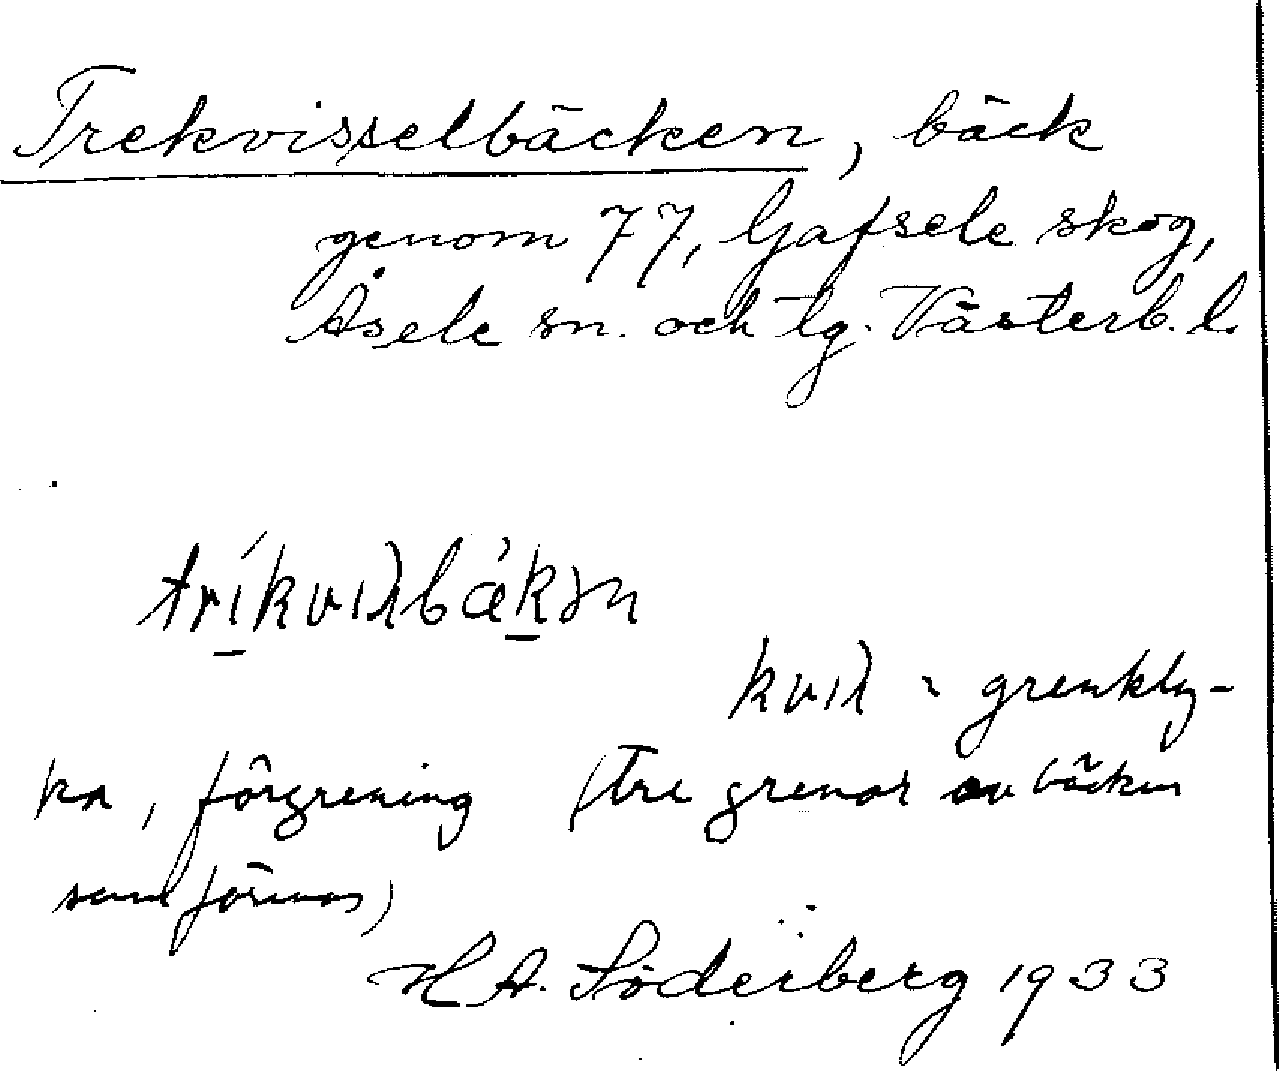 Trekvisselbäcken, bäck
genom 77, Gafsele skog,
Åsele sn. och lg. Västerb. l.
kvıλ = grenkly-
ka, förgrening (tre grenar av bäcken
H A. Söderberg 1933